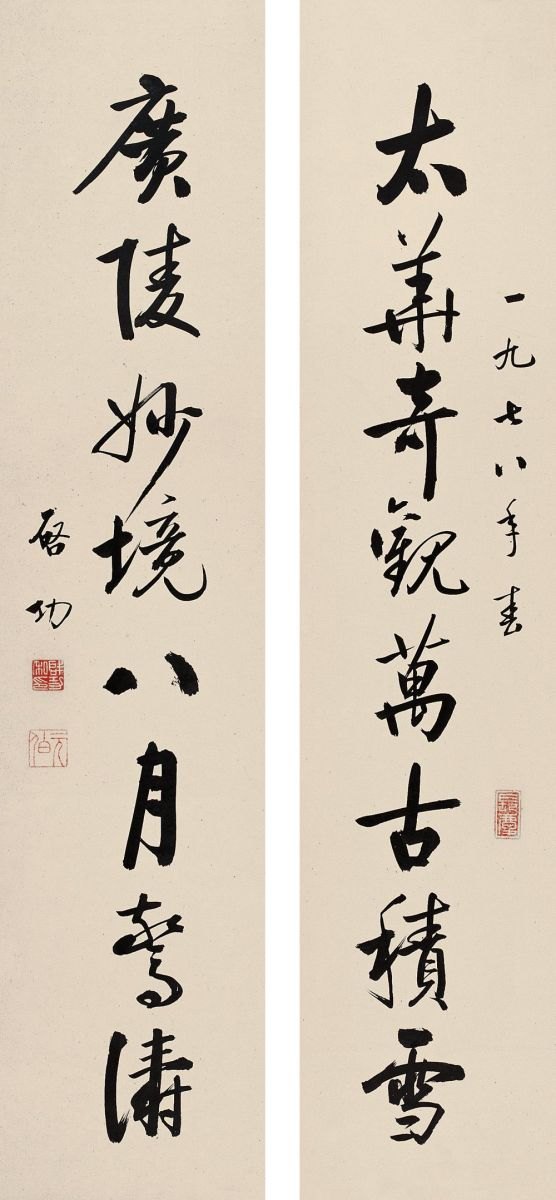 一九七八年春
太華奇觀萬古積雪
廣陵妙境八月驚濤
啓功